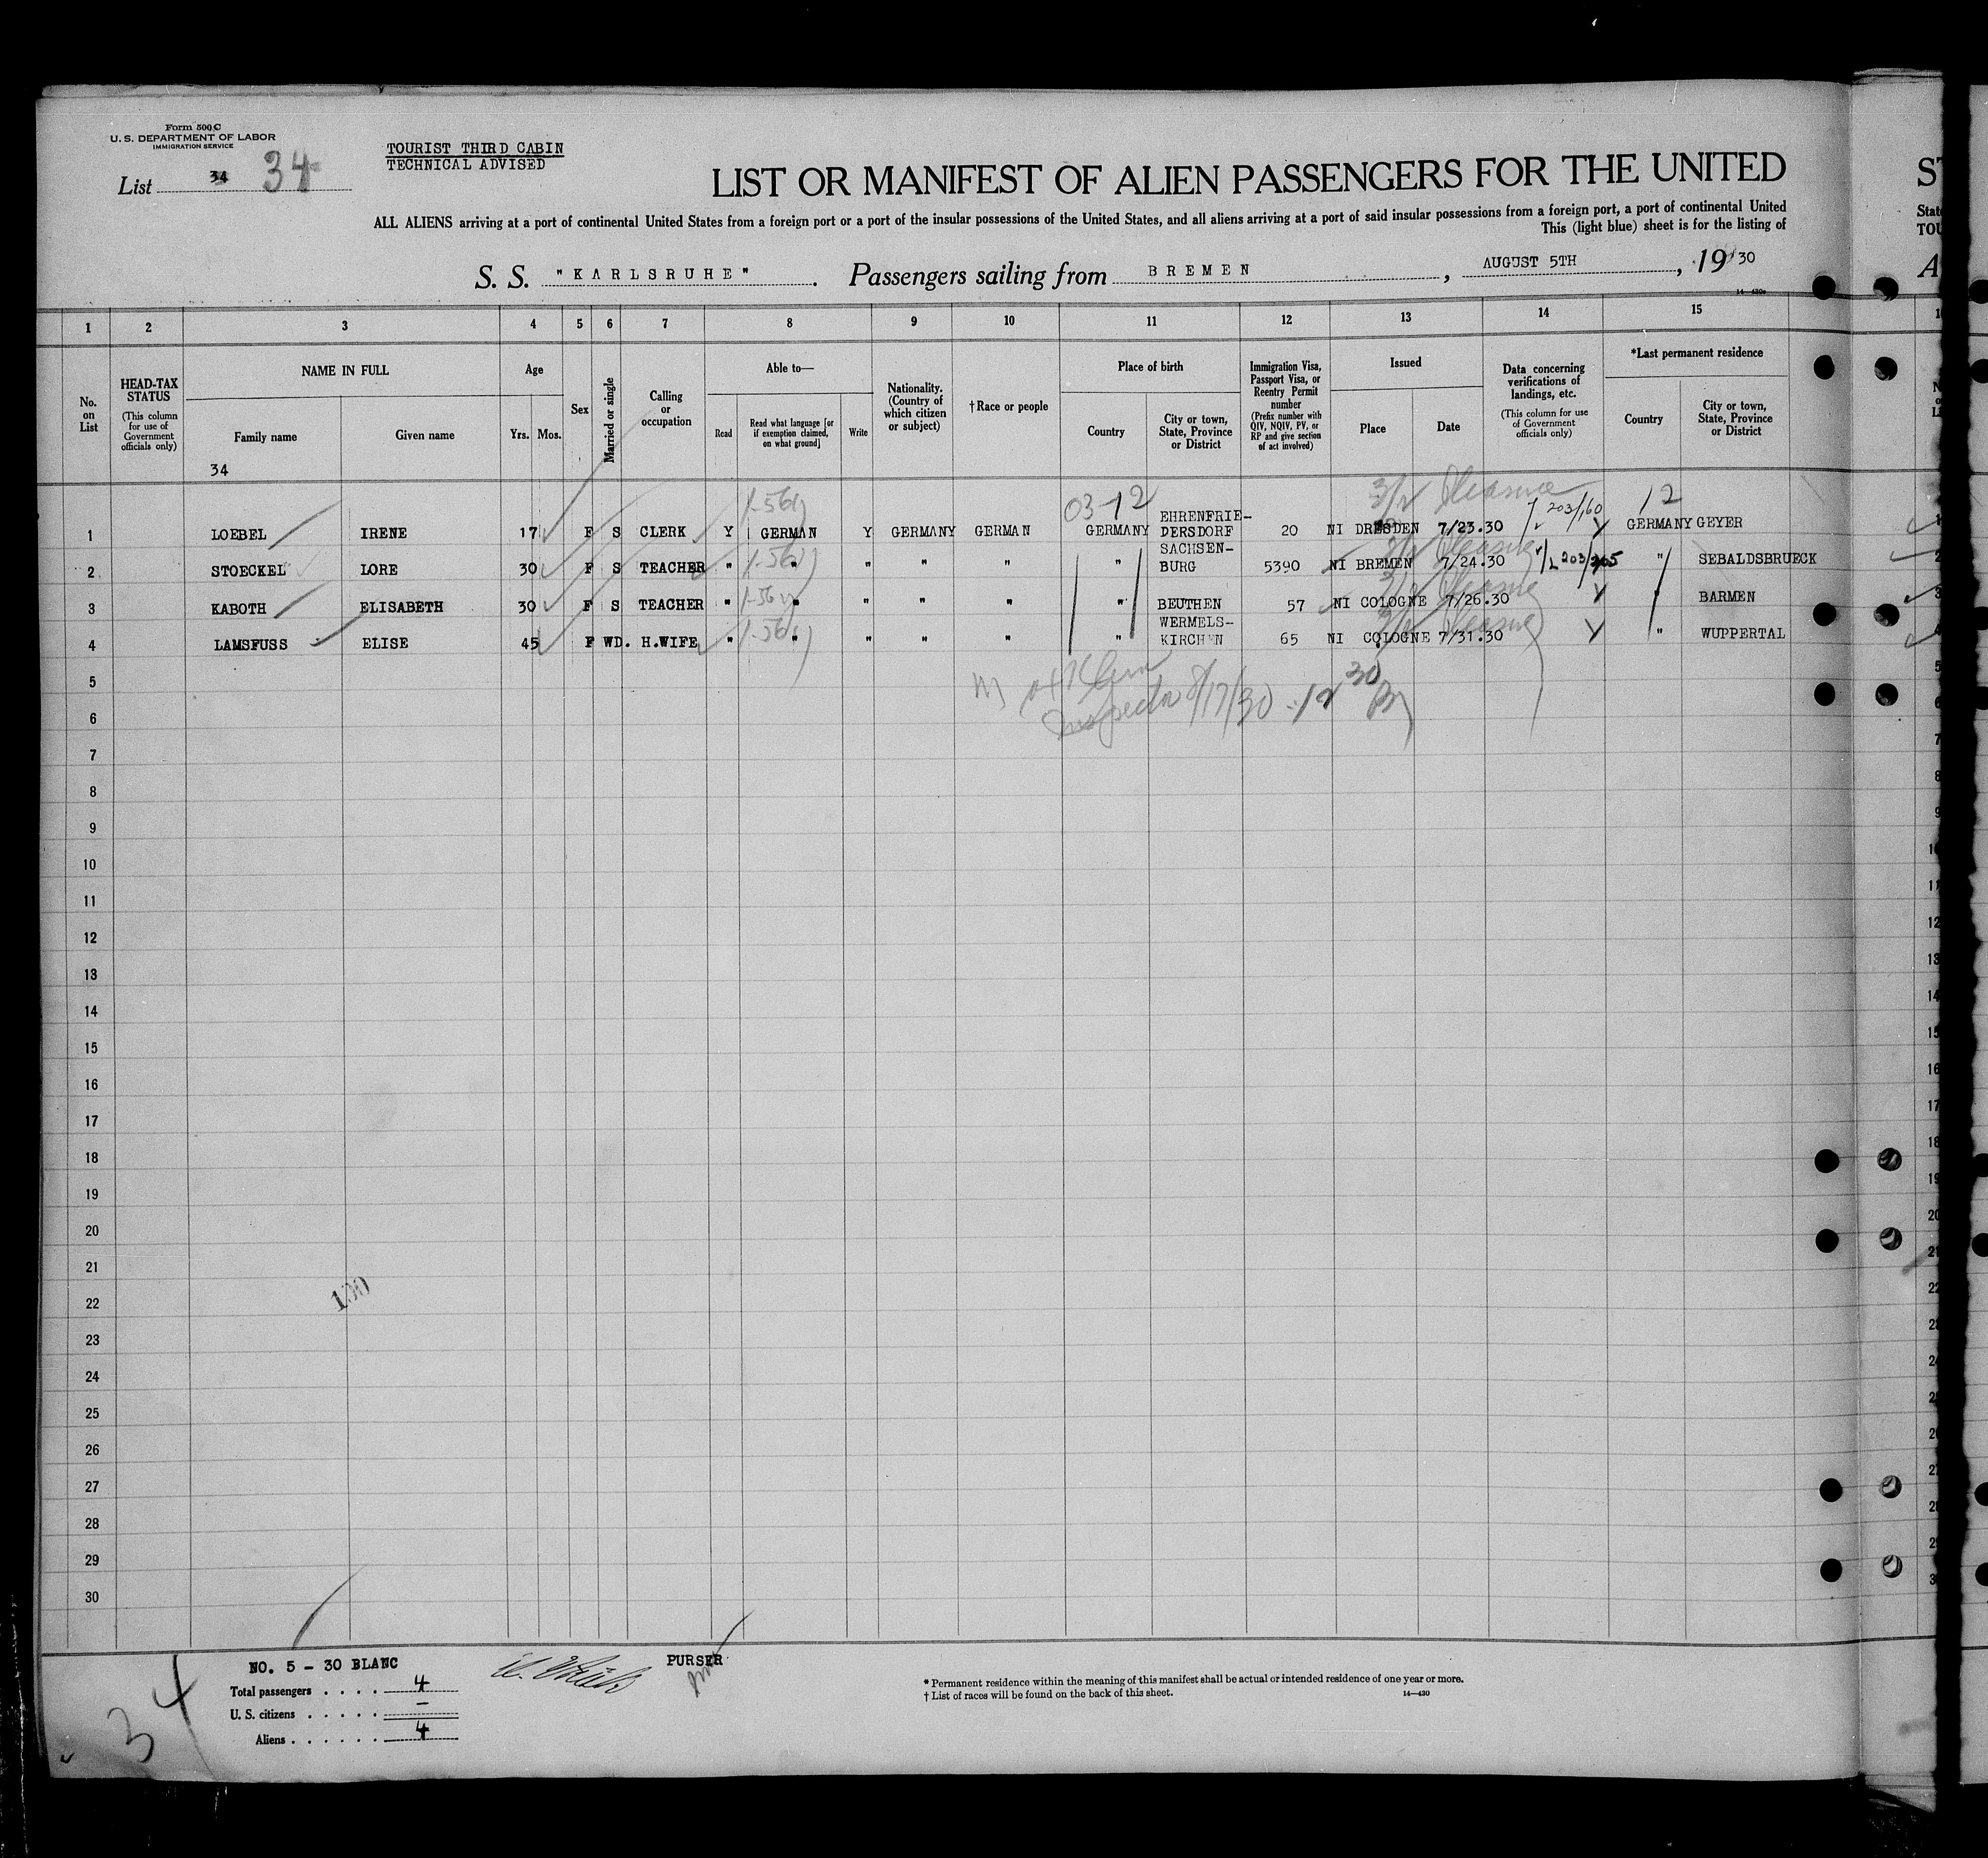 Form 500 C
U. S. DEPARTMENT OF LABOR
IMMIGRATION SERVICE
List 34 34
TOURIST THIRD CABIN
TECHNICAL ADVISED
LIST OR MANIFEST OF ALIEN PASSENGERS FOR THE UNITED
ALL ALIENS arriving at a port of continental United States from a foreign port or a port of the insular possessions of the United States, and all aliens arriving at a port of said insular possessions from a foreign port, a port of continental United
This (light blue) sheet is for the listing of
S. S. "KARLSRUHE". Passengers sailing from BREMEN, AUGUST 5TH, 1930
14—430a
1 2 3 4 5 6 7 8 9 10 11 12 13 14 15
No. on List
HEAD-TAX STATUS (This column for use of Government officials only)
NAME IN FULL
Family name Given name
34
Age
Yrs. Mos.
Sex
Married or single
Calling or occupation
Able to—
Read Read what language [or if exemption claimed, on what ground] Write
Nationality. (Country of which citizen or subject)
† Race or people
Place of birth
Country City or town, State, Province or District
Immigration Visa, Passport Visa, or Reentry Permit number (Prefix number with QIV, NQIV, PV, or RP and give section of act involved)
Issued
Place Date
Data concerning verifications of landings, etc. (This column for use of Government officials only)
*Last permanent residence
Country City or town, State, Province or District
03-12 12
203/160
1 LOEBEL IRENE 17 F S CLERK Y GERMAN Y GERMANY GERMAN GERMANY EHRENFRIE-DERSDORF 20 NI DRESDEN 7/23.30 GERMANY GEYER
2 STOECKEL LORE 30 F S TEACHER " " " " " " SACHSEN-BURG 5390 NI BREMEN 7/24.30 " SEBALDSBRUECK
3 KABOTH ELISABETH 30 F S TEACHER " " " " " " BEUTHEN 57 NI COLOGNE 7/26.30 " BARMEN
4 LAMSFUSS ELISE 45 F WD. H.WIFE " " " " " " WERMELS-KIRCHEN 65 NI COLOGNE 7/31.30 " WUPPERTAL
Inspector 8/17/30
5
6
7
8
9
10
11
12
13
14
15
16
17
18
19
20
21
22
23
24
25
26
27
28
29
30
NO. 5 - 30 BLANC
Total passengers . . . . 4
U. S. citizens . . . . . –
Aliens . . . . . . 4
34
PURSER
* Permanent residence within the meaning of this manifest shall be actual or intended residence of one year or more.
† List of races will be found on the back of this sheet. 14—430